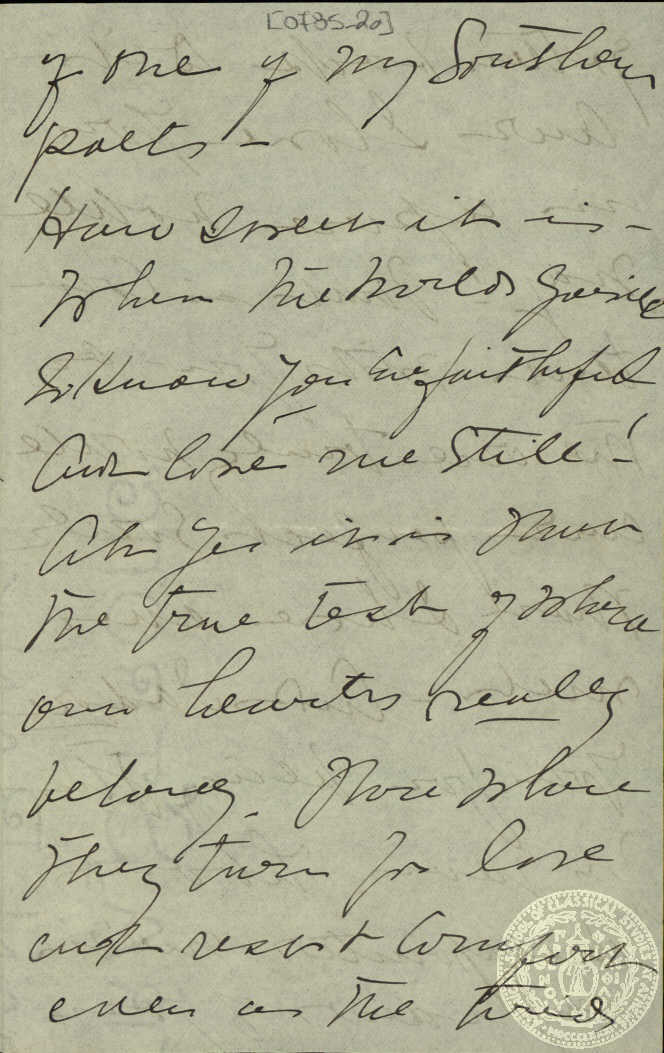 [0785-20]
of one of my Southern
poets -
How sweet it is -
When the World's going
To Know you are faithful
And love me still! -
Ah yes it is
the true test of where
our hearts really
belong.
they turn for love
and rest & Comfort
even as the tried